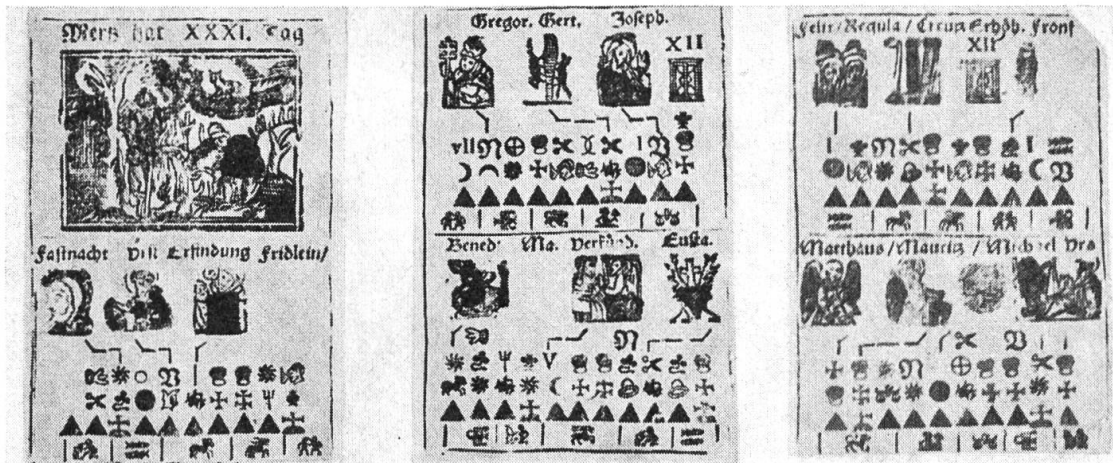 Mertz hat XXXI. Tag
Fastnacht Erfindung Fridlein/
Gregor. Gert. Joseph.
XII
VII
Bened. Ma. Verkünd. Eusta.
V
Felix/Regula/Creutz Erhöh. Fronf
XII
Mattheus/Mauritz/Michael Urs